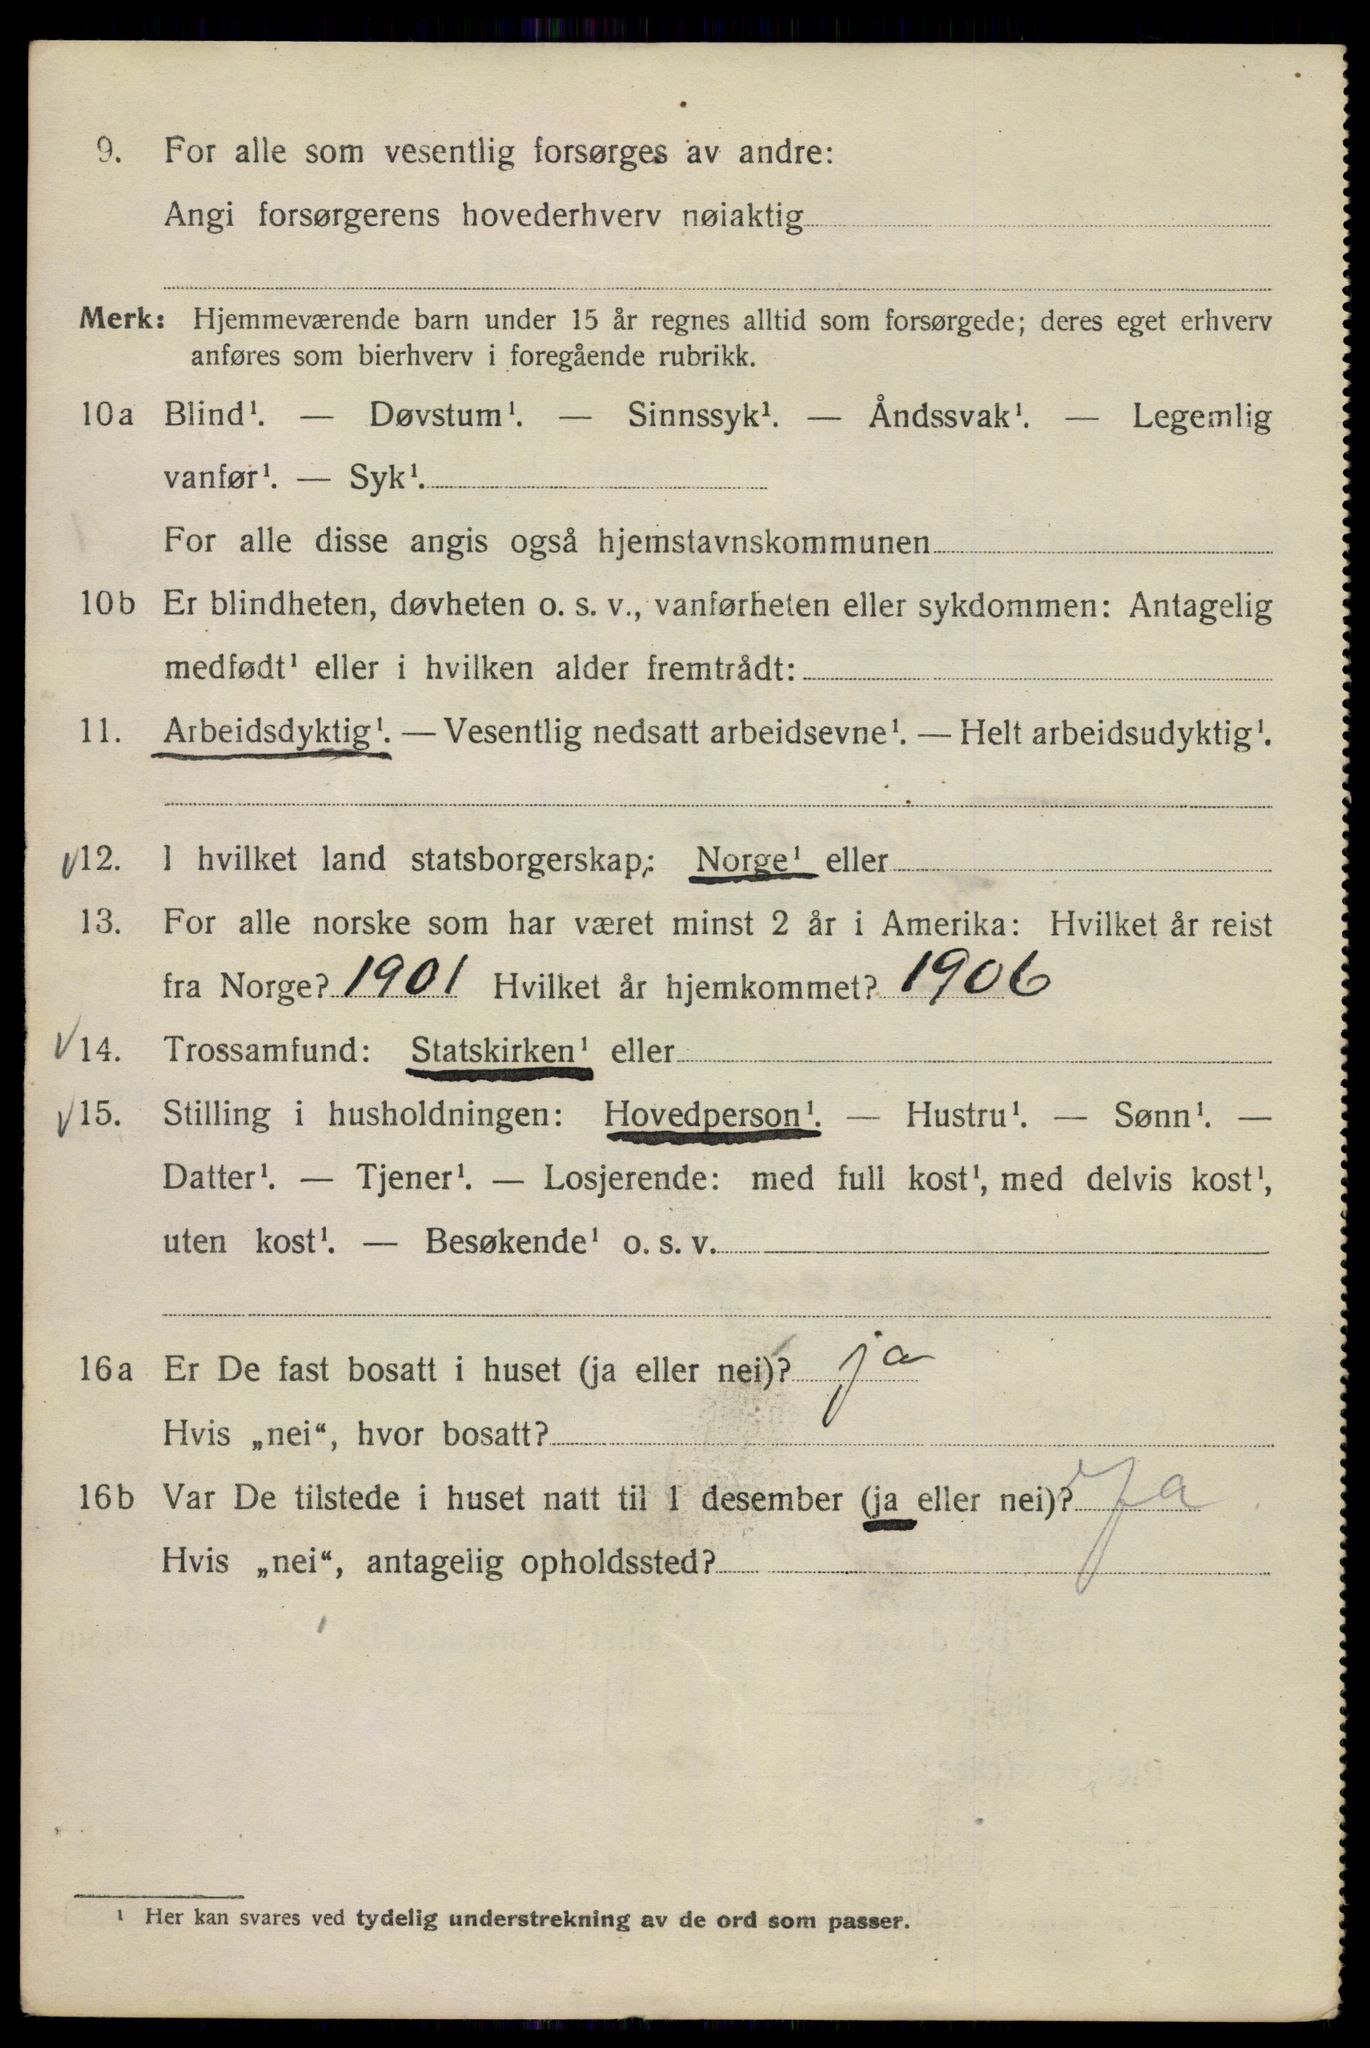 9. For alle som vesentlig forsørges av andre:
Angi forsørgerens hovederhverv nøiaktig
Merk: Hjemmeværende barn under 15 år regnes alltid som forsørgede; deres eget erhverv
anføres som bierhverv i foregående rubrikk.
10a Blind¹. — Døvstum¹. — Sinnssyk¹. — Åndssvak¹. — Legemlig
vanfør¹. — Syk¹.
For alle disse angis også hjemstavnskommunen
10b Er blindheten, døvheten o. s. v., vanførheten eller sykdommen: Antagelig
medfødt¹ eller i hvilken alder fremtrådt:
11. Arbeidsdyktig¹. — Vesentlig nedsatt arbeidsevne¹. — Helt arbeidsudyktig¹.
12. I hvilket land statsborgerskap: Norge¹ eller
13. For alle norske som har været minst 2 år i Amerika: Hvilket år reist
fra Norge? 1901 Hvilket år hjemkommet? 1906
14. Trossamfund: Statskirken¹ eller
15. Stilling i husholdningen: Hovedperson¹. — Hustru¹. — Sønn¹. —
Datter¹. — Tjener¹. — Losjerende: med full kost¹, med delvis kost¹,
uten kost¹. — Besøkende¹ o. s. v.
16a Er De fast bosatt i huset (ja eller nei)? ja
Hvis „nei“, hvor bosatt?
16b Var De tilstede i huset natt til 1 desember (ja eller nei)? Ja
Hvis „nei“, antagelig opholdssted?
¹ Her kan svares ved tydelig understrekning av de ord som passer.